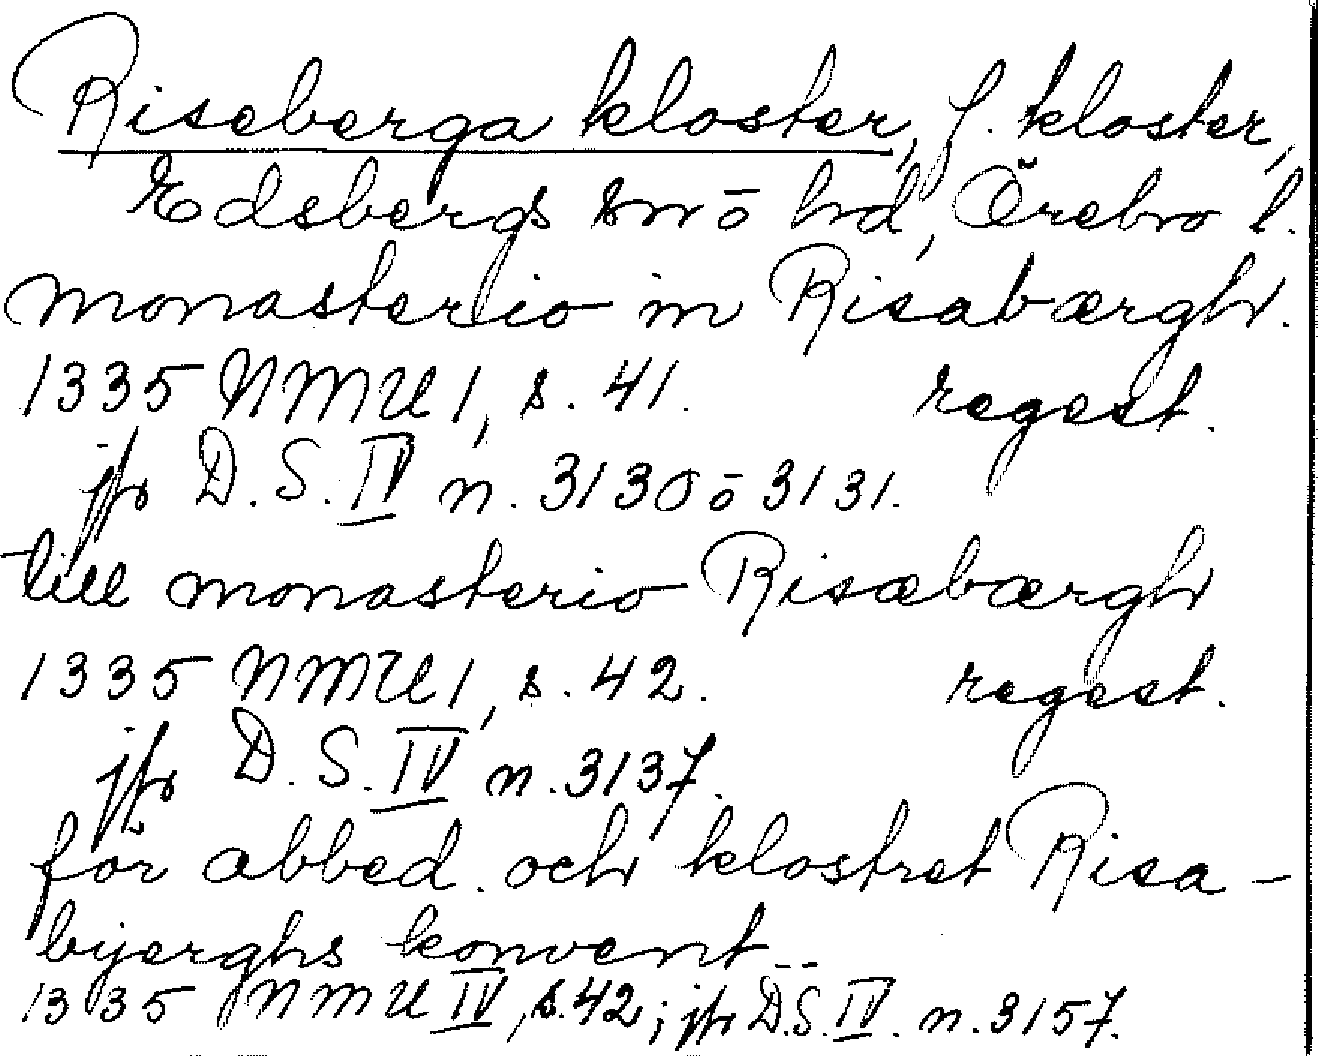 Riseberga kloster, f. kloster,
Edsbergs sn o hd, Örebro l.
monasterio in Risabærgh.
1335 NMU 1, s. 41. regest.
jfr D.S. IV n. 3130 o 3131.
till monasterio Risæbærgh
1335 NMU 1, s. 42. regest.
jfr D.S. IV n. 3137.
för abbed. och klostret Risa-
byerghs konvent..
1335 NMU IV, s. 42; jfr D.S. IV. n. 3157.